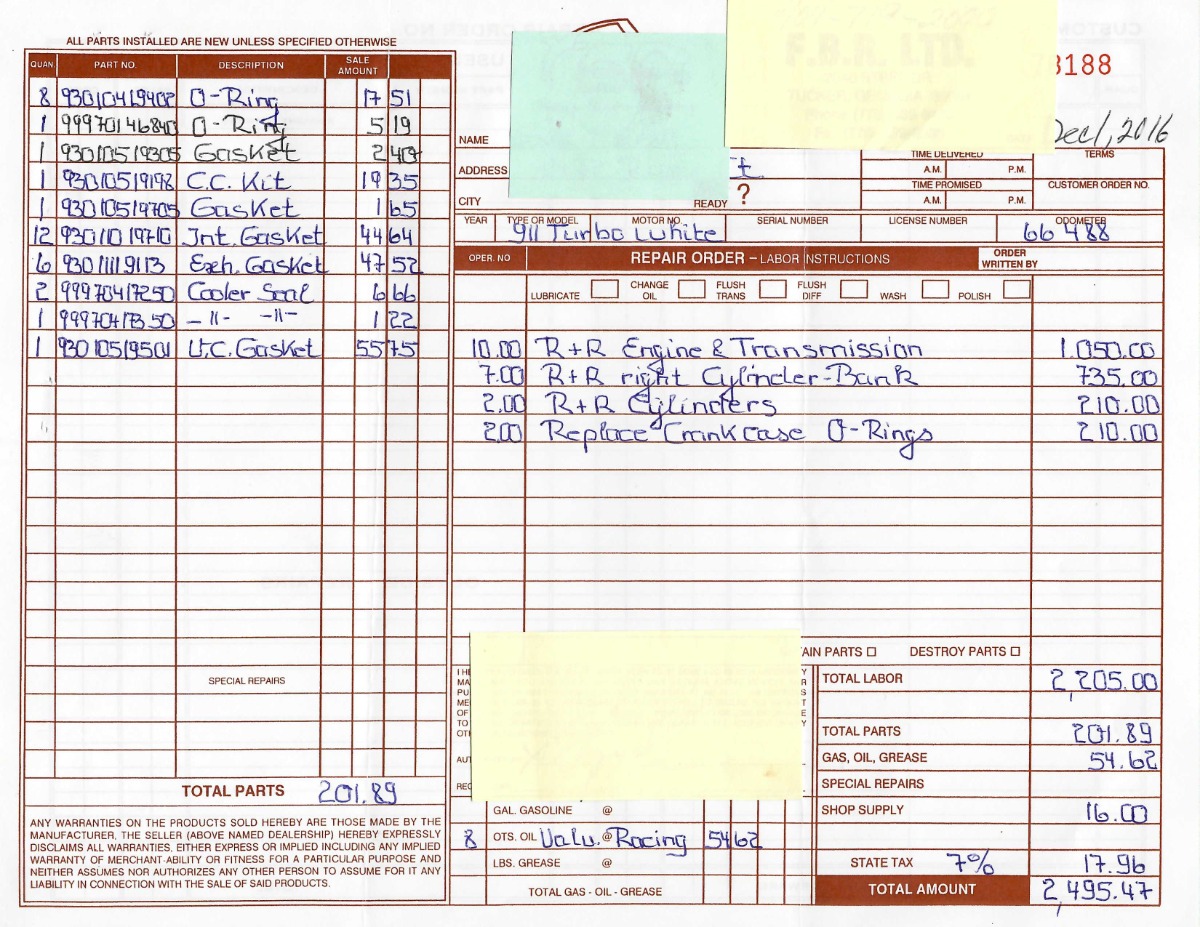 ALL PARTS INSTALLED ARE NEW UNLESS SPECIFIED OTHERWISE
QUAN. PART NO. DESCRIPTION SALE AMOUNT
8 93010419402 O-Ring 17 51
1 99970146840 O-Ring 5 19
1 93010519305 Gasket 2 40
1 93010519198 C.C. Kit 19 35
1 93010519705 Gasket 1 65
12 93011019710 Int. Gasket 44 64
6 93011119113 Exh. Gasket 47 52
2 99970417250 Cooler Seal 6 66
1 99970417350 -11- -11- 1 22
1 93010519501 U.C. Gasket 55 75
SPECIAL REPAIRS
TOTAL PARTS 201.89
ANY WARRANTIES ON THE PRODUCTS SOLD HEREBY ARE THOSE MADE BY THE
MANUFACTURER, THE SELLER (ABOVE NAMED DEALERSHIP) HEREBY EXPRESSLY
DISCLAIMS ALL WARRANTIES, EITHER EXPRESS OR IMPLIED INCLUDING ANY IMPLIED
WARRANTY OF MERCHANT-ABILITY OR FITNESS FOR A PARTICULAR PURPOSE AND
NEITHER ASSUMES NOR AUTHORIZES ANY OTHER PERSON TO ASSUME FOR IT ANY
LIABILITY IN CONNECTION WITH THE SALE OF SAID PRODUCTS.
F.B.R. LTD.
3188
Dec 1, 2016
NAME
ADDRESS
CITY
READY ?
TIME DELIVERED
A.M. P.M.
TIME PROMISED
A.M. P.M.
TERMS
CUSTOMER ORDER NO.
YEAR TYPE OR MODEL MOTOR NO. SERIAL NUMBER LICENSE NUMBER ODOMETER
911 Turbo White 66 488
OPER. NO REPAIR ORDER – LABOR INSTRUCTIONS ORDER WRITTEN BY
LUBRICATE CHANGE OIL FLUSH TRANS FLUSH DIFF WASH POLISH
10.00 R+R Engine & Transmission 1.050.00
7.00 R+R right Cylinder-Bank 735.00
2.00 R+R Cylinders 210.00
2.00 Replace Crankcase O-Rings 210.00
AIN PARTS DESTROY PARTS
TOTAL LABOR 2,205.00
TOTAL PARTS 201.89
GAS, OIL, GREASE 54.62
SPECIAL REPAIRS
SHOP SUPPLY 16.00
STATE TAX 7% 17.96
TOTAL AMOUNT 2,495.47
GAL. GASOLINE @
8 OTS. OIL Valv. @ Racing 54 62
LBS. GREASE @
TOTAL GAS - OIL - GREASE